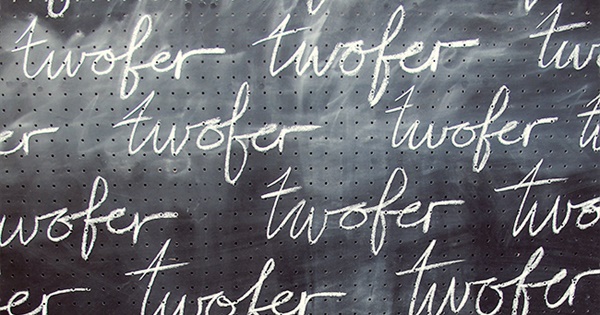 twofer twofer tw
er twofer twofer tw
wofer twofer two
er twofer twofer